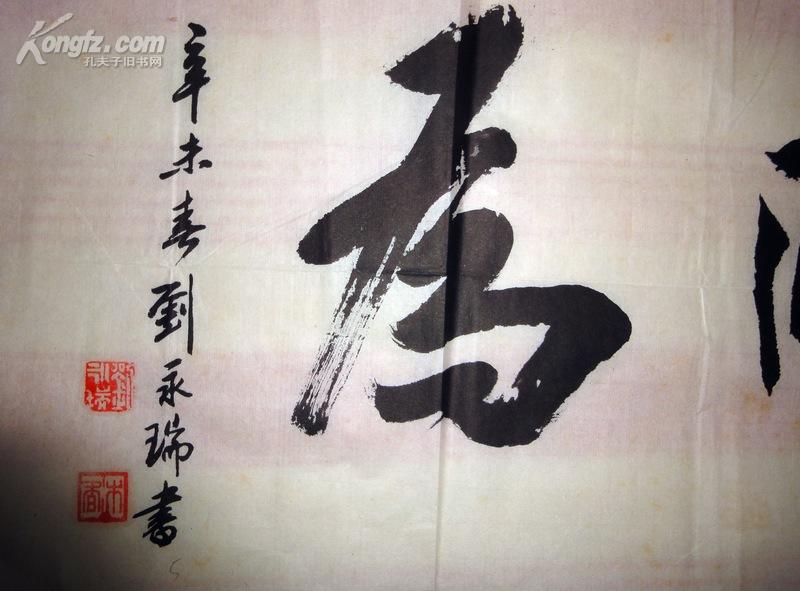 为
辛未春劉永瑞書
Kongfz.com
孔夫子旧书网